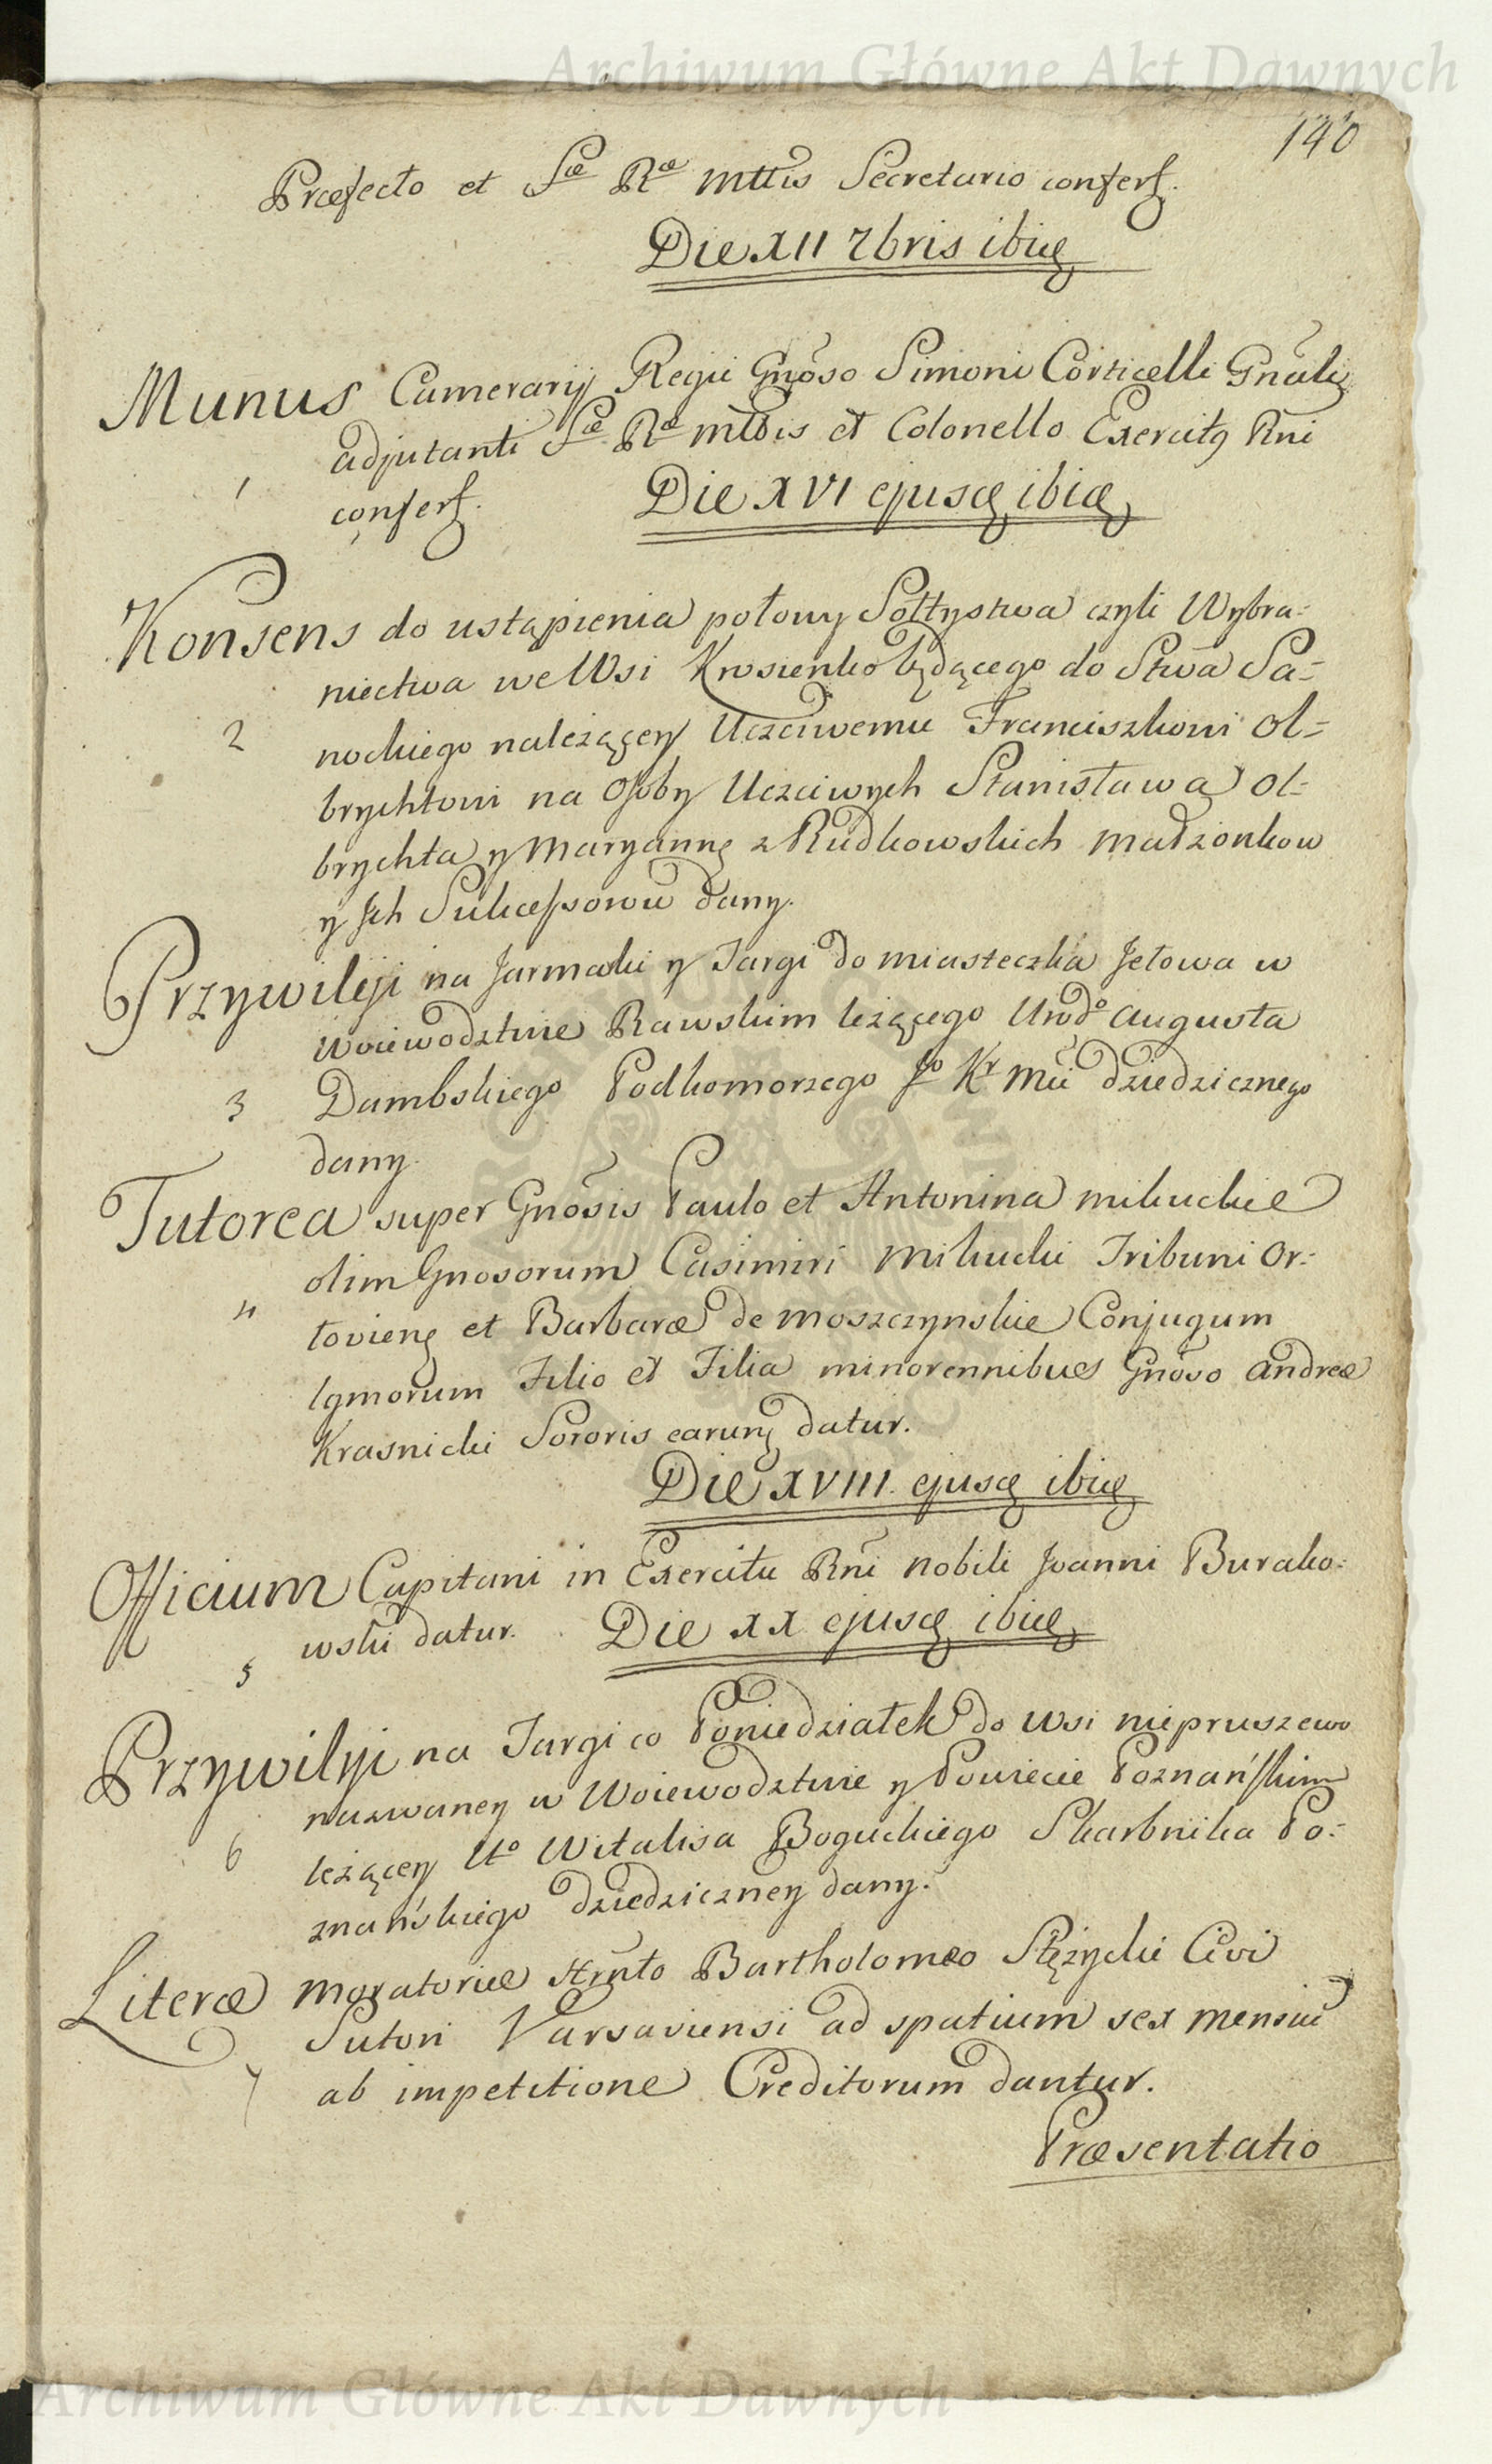 Archiwum Główne Akt Dawnych
140
Præfecto et Sæ Ræ Mttis Secretario confert.
Die XII 7bris ibid
Munus Camerarij Regii Gnoso Simoni Corticelli Gnali
adjutanti Sæ Ræ Mttis et Colonello Exercitq Rni
1
confert.
Die XVI ejusd ibid
Konsens do ustąpienia połowy Sołtystwa czyli Wybra=
niectwa we Wsi Krosienko będącego do Stwa Sa=
2
nockiego należącey Uczciwemu Franciszkowi Ol=
brychtowi na Osoby Uczciwych Stanisława Ol=
brychta y Maryannę z Rudkowskich Małżonkow
y Ich Sukcessorow dany.
Przywiley na Jarmarki y Targi do miasteczka Jeżowa w
Woiewodztwie Rawskim leżącego Urodo Augusta
3
Dambskiego Podkomorzego Jo Kr Mci dziedzicznego
dany.
Tutorea super Gnosis Paulo et Antonina Mikuckie
olim Gnosorum Casimiri Mikucki Tribuni Or=
4
lovien et Barbaræ de Moszczynskie Conjugum
lgmorum Filio et Filia minorennibus Gnoso Andreæ
Krasnicki Sororis earum datur.
Die XVIII. ejusd ibid
Officium Capitani in Exercitu Rni Nobili Joanni Burako=
wski datur.
Die XX ejusd ibid
5
Przywiley na Targi co Poniedziałek do Wsi Niepruszewo
nazwaney w Woiewodztwie y Powiecie Poznańskim
6
leżącey Uo Witalisa Boguckiego Skarbnika Po=
znańskiego dziedziczney dany.
Literæ Moratoriæ Hrnto Bartholomeo Stężycki Civi
Sutori Varsaviensi ad spatium sex mensiu
7
ab impetitione Creditorum dantur.
Præsentatio
Archiwum Główne Akt Dawnych